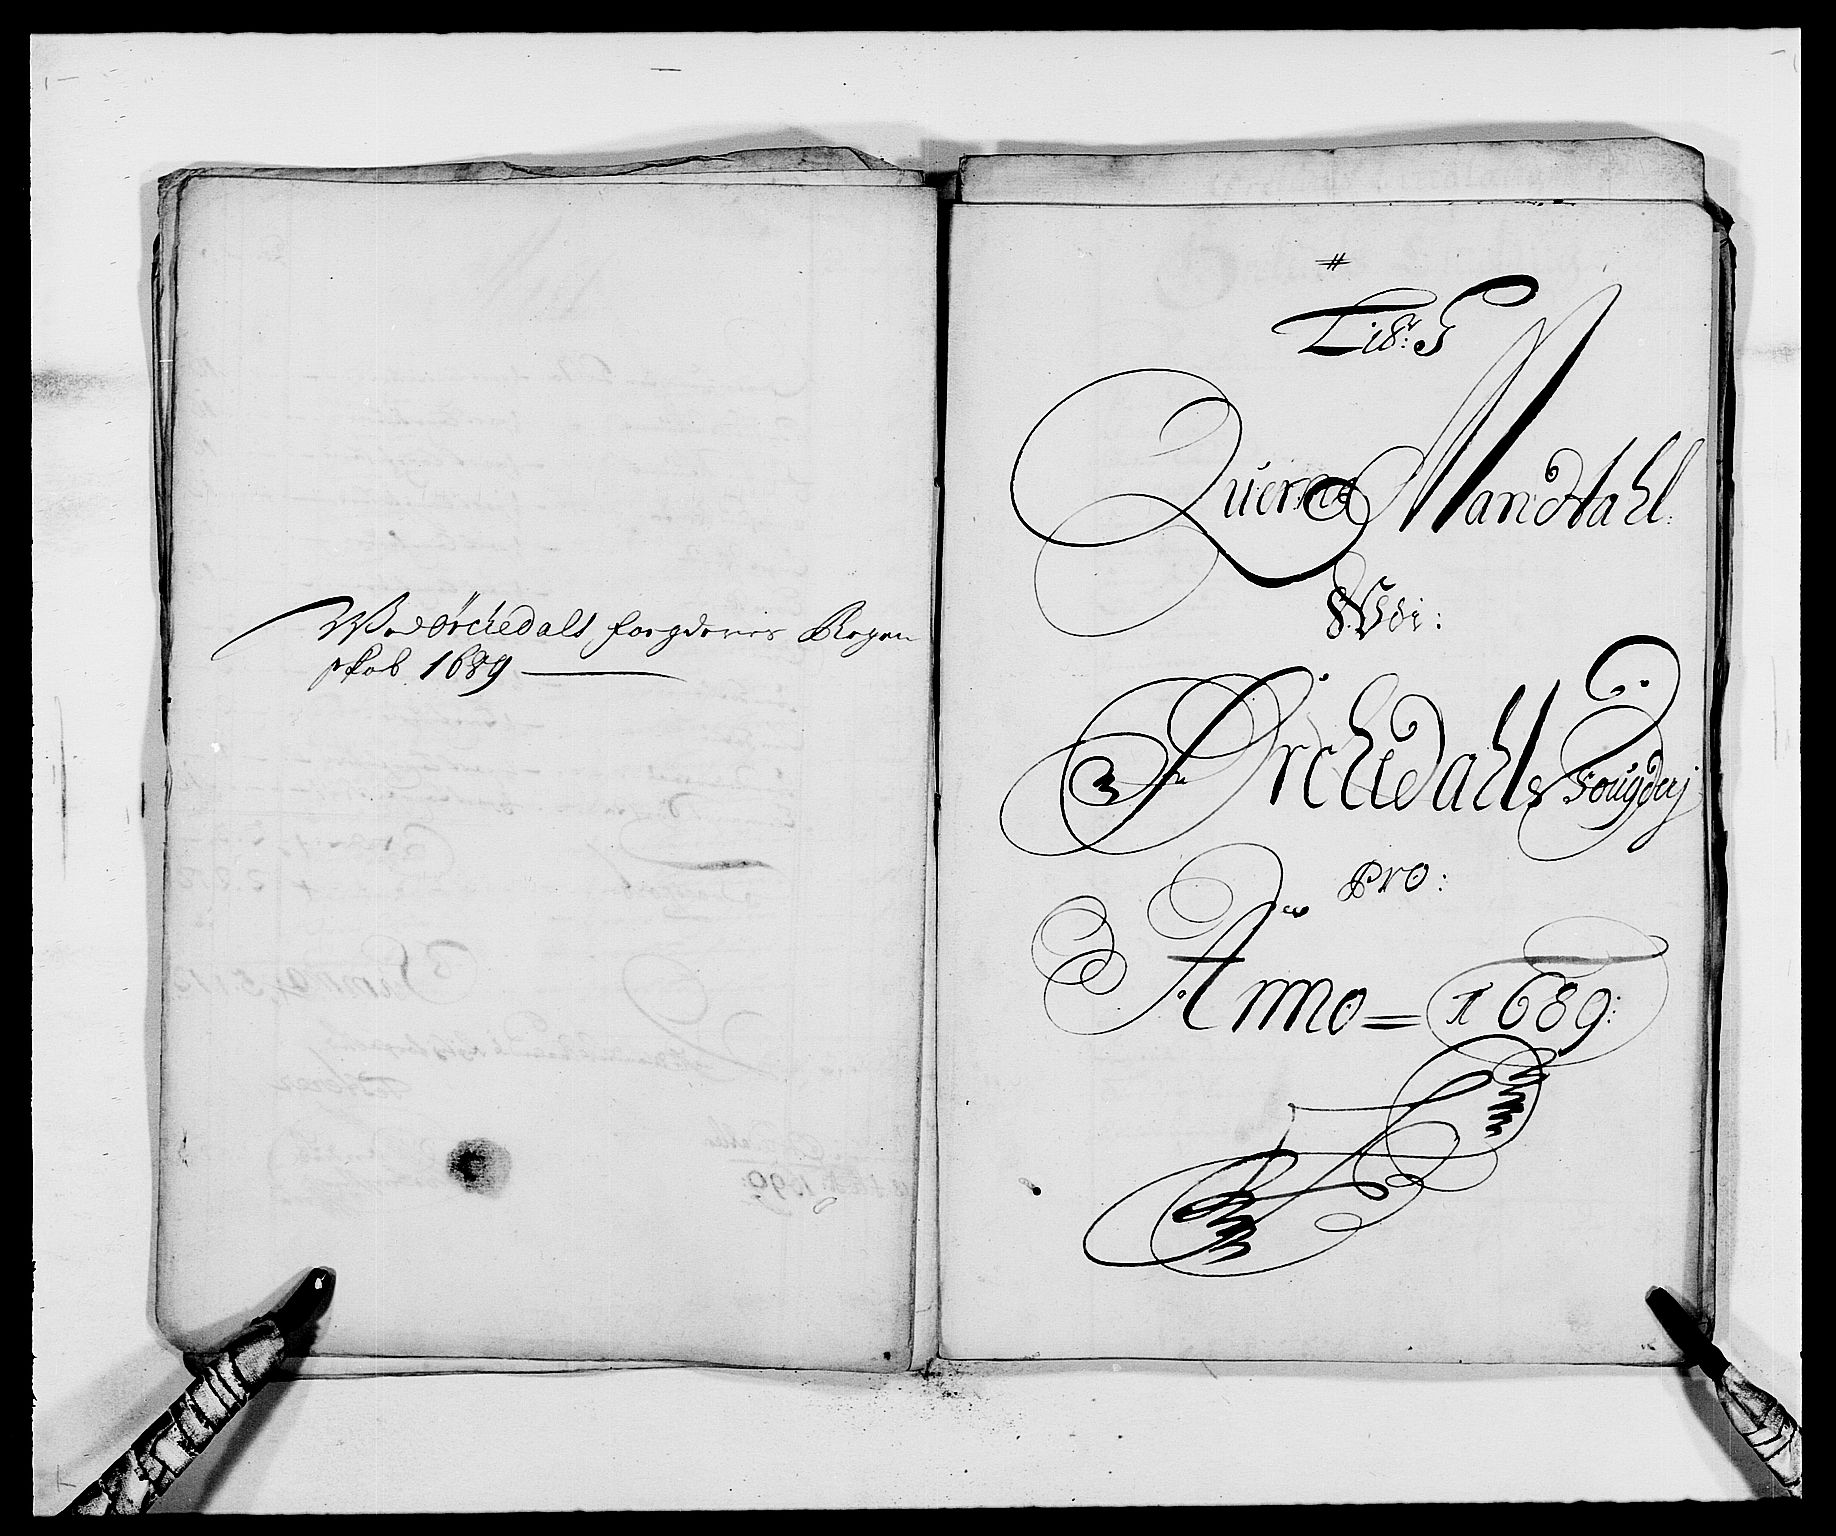 Wed Örchedals fougderies Regen
skab 1689
#
Litr: G
Querne Mandtahl
Udi:
Örchedahls Fougderj
Pro:
Anno = 1689: